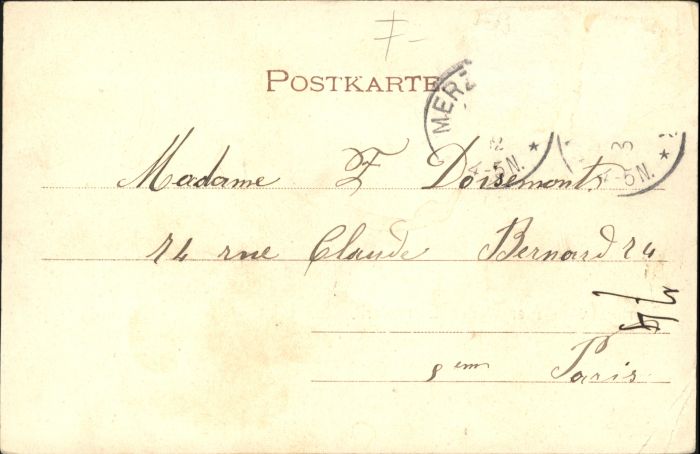 POSTKARTE
MERZ
4-5N. *
-5N. *
Madame F Doisemont
24 rue Claude Bernard 24
Paris